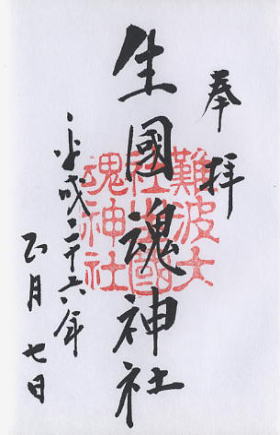 奉拝
生國魂神社
平成二十六年
正月七日
難波大
社生國
魂神社